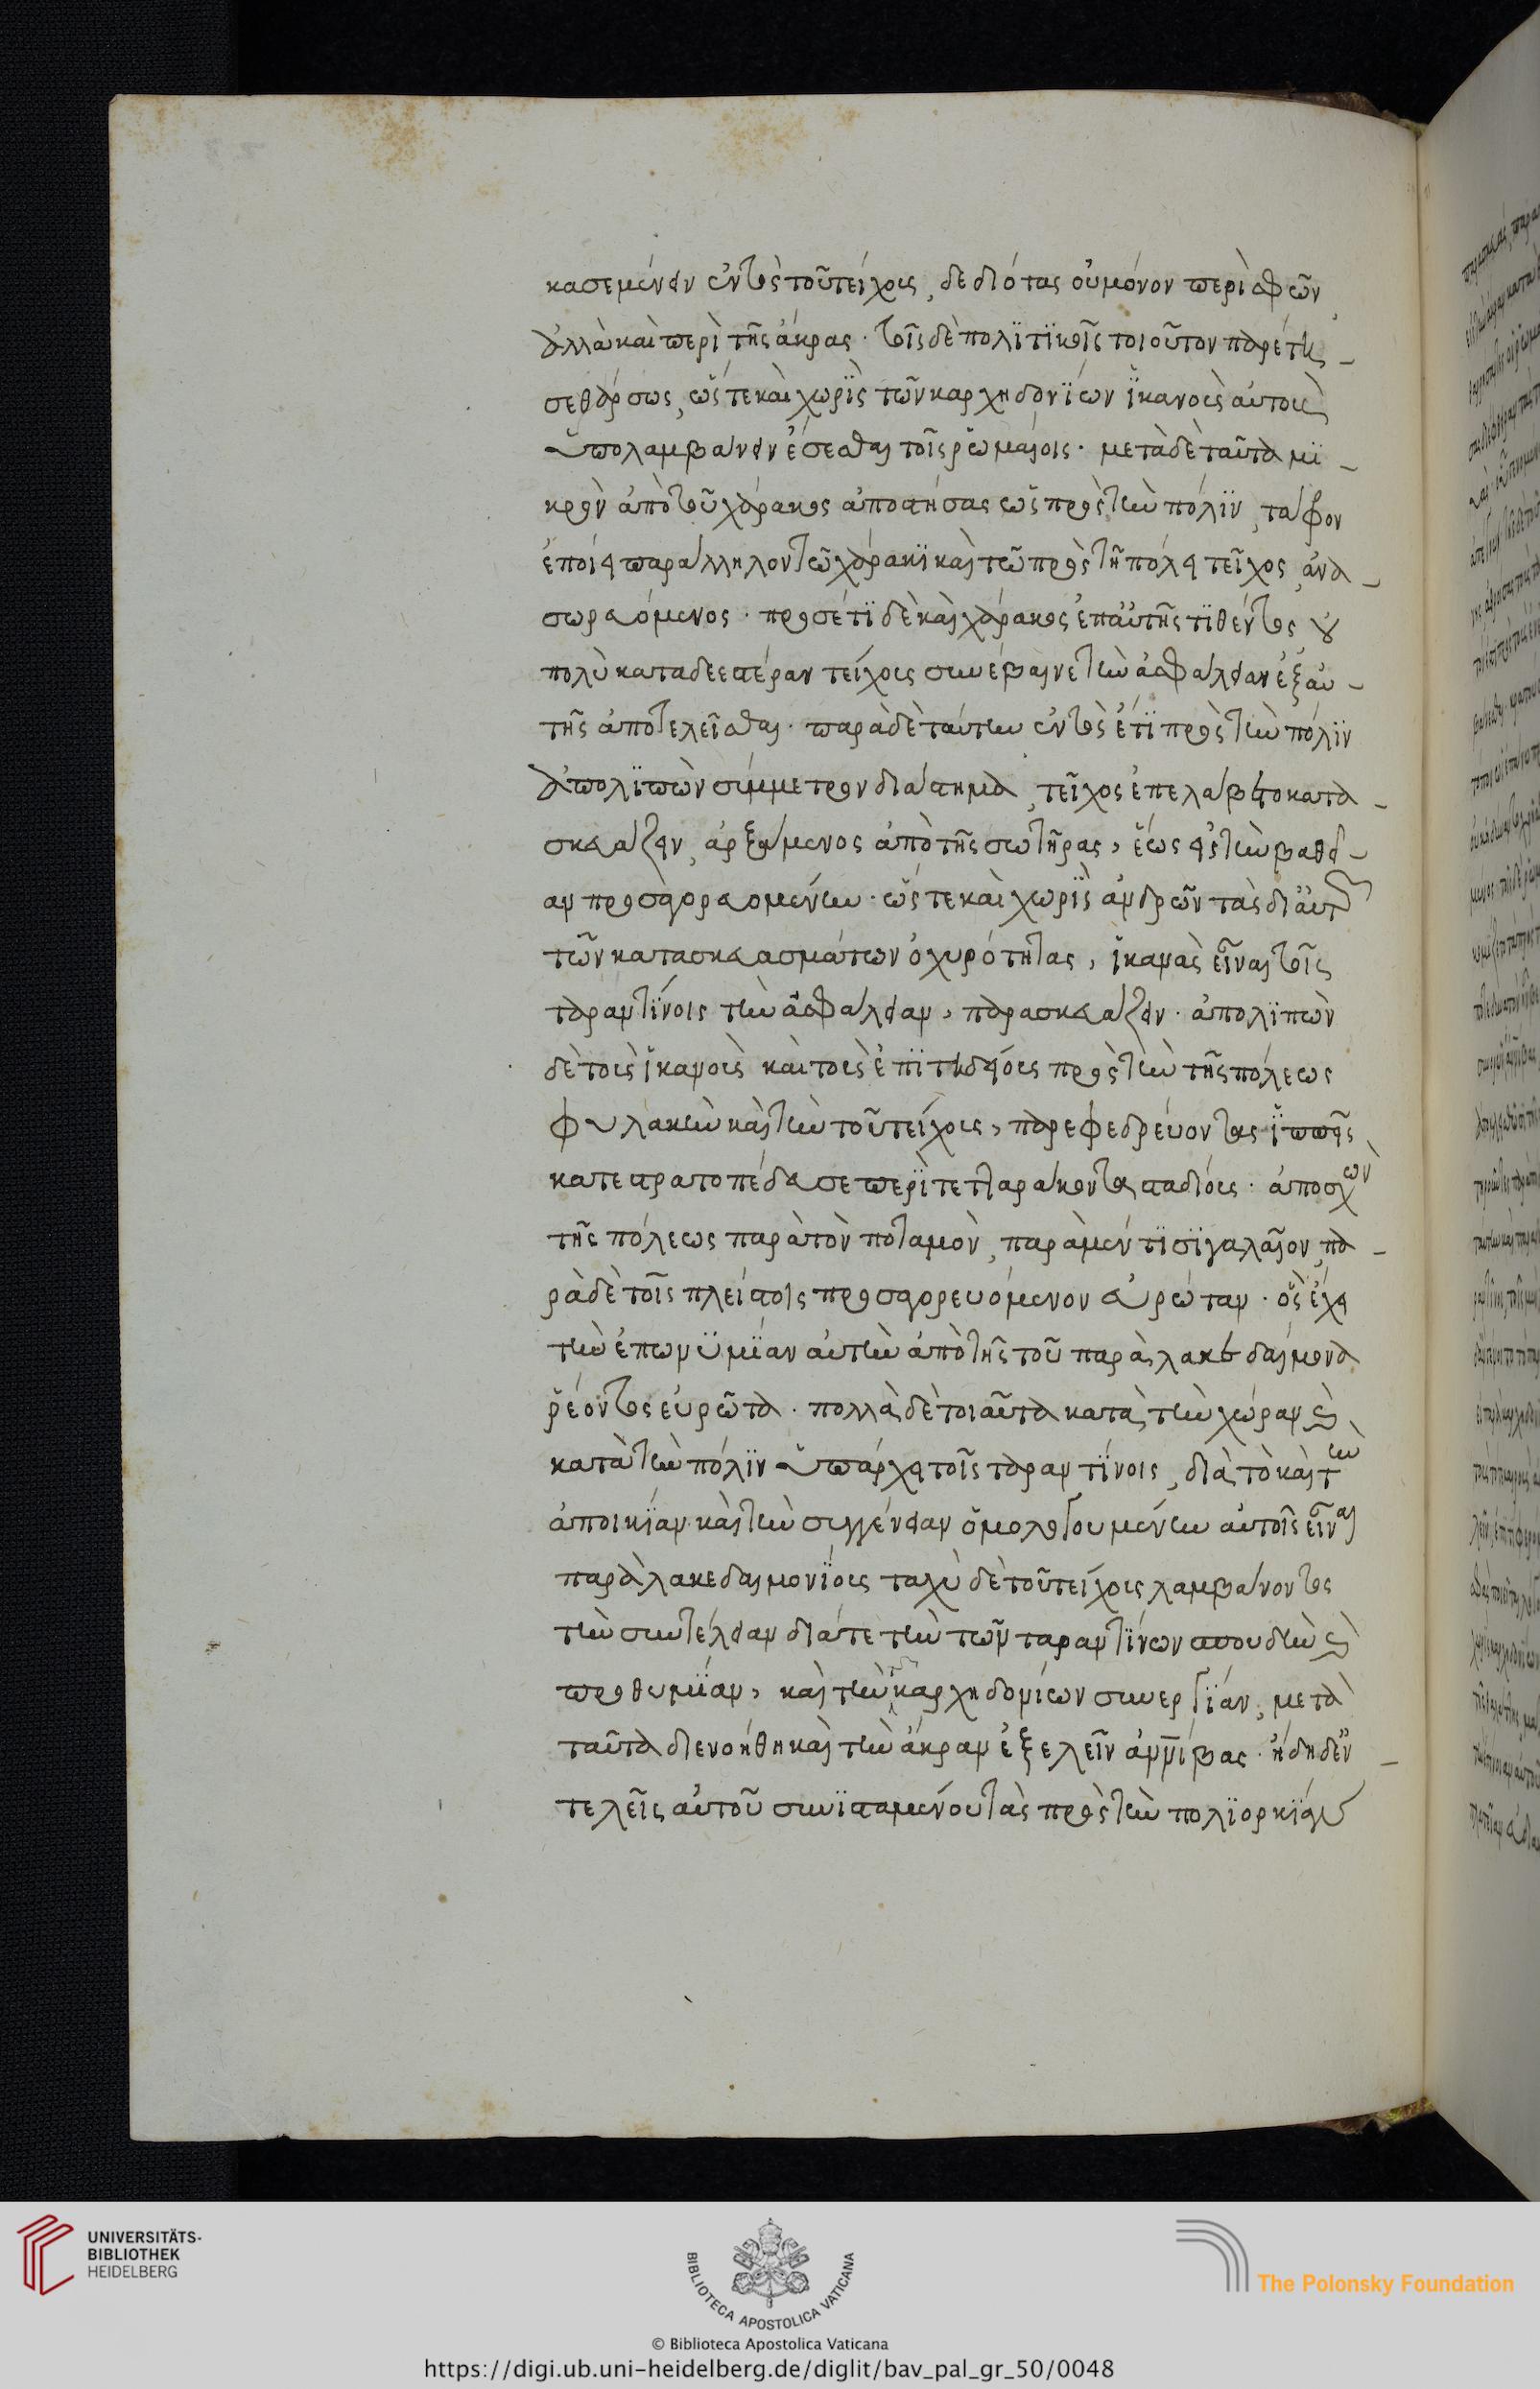 κασε μένειν ἐντὸς τοῦ τείχους, δεδιότας οὐ μόνον περὶ σφῶν,
ἀλλὰ καὶ περὶ τῆς ἄκρας· τοῖς δὲ πολϊτϊκοῖς τοιοῦτον παρέστη-
σε θάρσως, ὥστε καὶ χωρῒς τῶν καρχηδονΐων ἱκανοὺς αὐτοὺς
ὑπολαμβάνειν ἔσεσθαι τοῖς ῥωμαίοις· μετὰ δὲ ταῦτα μϊ-
κρὸν ἀπὸ τοῦ χάρακος ἀποστήσας ὡς πρὸς τὴν πόλϊν, τάφρον
ἐποίει παράλληλον τῶ χάρακϊ καὶ τῶ πρὸς τῆ πόλει τεῖχος, ἀνα-
σωρευόμενος· προσέτϊ δὲ καὶ χάρακος ἐπ αὐτῆς τϊθέντος οὐ
πολὺ καταδεεστέραν τείχους συνέβαινε τὴν ἀσφάλειαν ἐξ αὐ-
τῆς ἀποτελεῖσθαι· παρὰ δὲ ταύτην ἐντὸς ἔτϊ πρὸς τὴν πόλϊν
ἀπολϊπὼν σύμμετρον διάστημα, τεῖχος ἐπελάβετο κατα-
σκευάζειν, ἀρξάμενος ἀπὸ τῆς σωτῆρας, ἕως εἰς τὴν βαθεῖ-
αν προσαγορευομένην· ὥστε καὶ χωρῒς ἀνδρῶν τὰς δι αὐτῶν
τῶν κατασκευασμάτων ὀχυρότητας, ἱκανὰς εἶναι τοῖς
ταραντίνοις τὴν ἀσφάλειαν, παρασκευάζειν· ἀπολϊπὼν
δὲ τοὺς ἱκανοὺς καὶ τοὺς ἐπϊτηδείους πρὸς τὴν τῆς πόλεως
φυλακὴν καὶ τὴν τοῦ τείχους, παρεφεδρεύοντας ἱππεῖς
κατεστρατοπέδευσε περῒ τετταράκοντα σταδίους· ἀποσχὼν
τῆς πόλεως παρὰ τὸν ποταμὸν, παρὰ μέν τϊσϊ γαλαῖον, πα-
ρὰ δὲ τοῖς πλείστοις προσαγορευόμενον εὐρώταν· ὃς ἔχει
τὴν ἐπωνϋμΐαν αὐτὴν ἀπὸ τῆς τοῦ παρὰ λακεδαίμονα
ῥέοντος εὐρῶτα· πολλὰ δὲ τοιαῦτα κατὰ τὴν χώραν καὶ
κατὰ τὴν πόλϊν ὑπάρχει τοῖς ταραντΐνοις, διὰ τὸ καὶ τὴν
ἀποικΐαν καὶ τὴν συγγένειαν ὁμολογουμένην αὐτοῖς εἶναι
παρὰ λακεδαιμονΐους ταχὺ δὲ τοῦ τείχους λαμβάνοντος
τὴν συντέλειαν διά τε τὴν τῶν ταραντΐνων σπουδὴν καὶ
προθυμΐαν, καὶ τὴν καρχηδονίων συνεργΐαν, μετὰ
ταῦτα διενοήθη καὶ τὴν ἄκραν ἐξελεῖν ἀννίβας· ἤδη δ ἐν-
τελεῖς αὐτοῦ συνϊσταμένου τὰς πρὸς τὴν πολϊορκΐαν
UNIVERSITÄTS-
BIBLIOTHEK
HEIDELBERG
BIBLIOTECA APOSTOLICA VATICANA
The Polonsky Foundation
© Biblioteca Apostolica Vaticana
https://digi.ub.uni-heidelberg.de/diglit/bav_pal_gr_50/0048